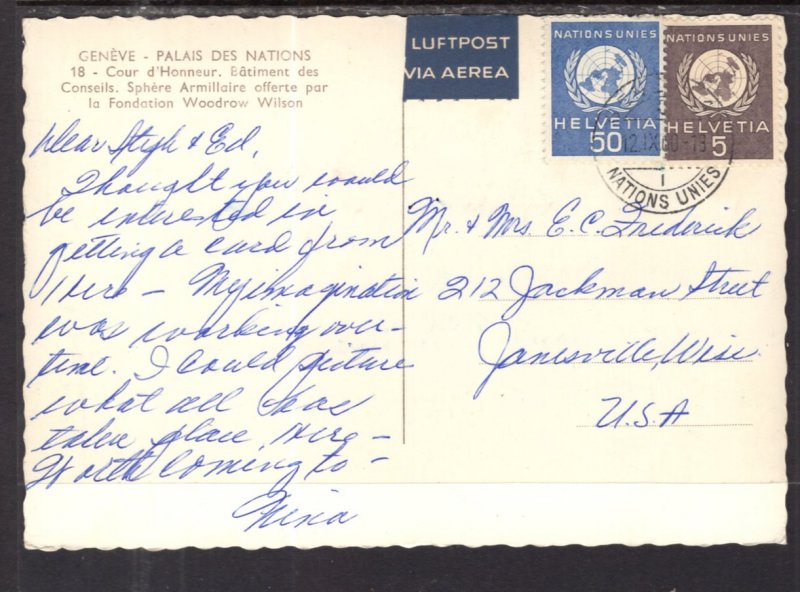 GENÈVE - PALAIS DES NATIONS
18 - Cour d'Honneur. Bâtiment des
Conseils. Sphère Armillaire offerte par
la Fondation Woodrow Wilson
LUFTPOST
VIA AEREA
NATIONS UNIES
HELVETIA
50
NATIONS UNIES
HELVETIA
5
12.IX.60-13
1
NATIONS UNIES
Dear Steph & Ed,
Thought you would
be interested in
getting a card from
Here - My imagination
was working over-
time. I could picture
what all has
taken place Here -
Worth coming to -
Nina
Mr. & Mrs E.C. Frederick
212 Jackman Street
Janesville, Wisc.
U.S.A